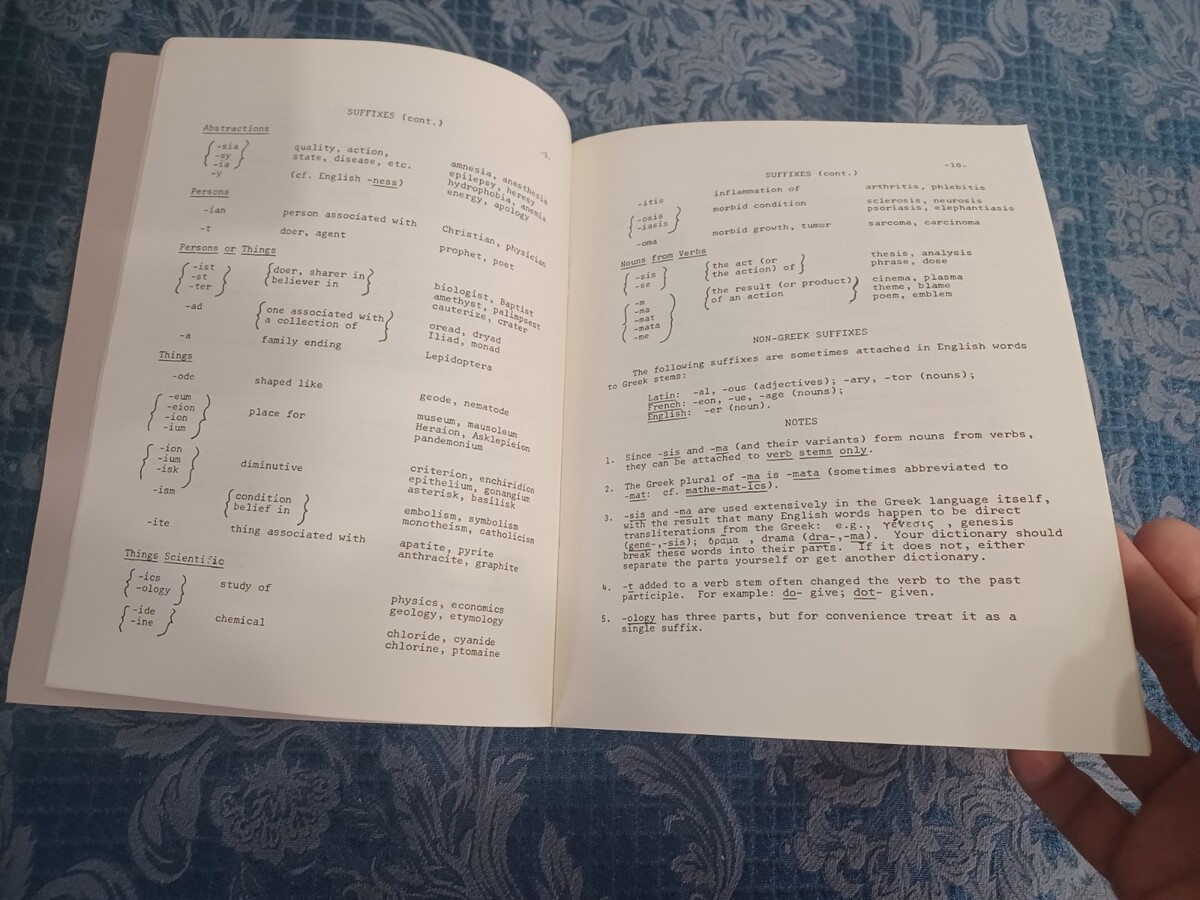 SUFFIXES (cont.)
Abstractions
-sia quality, action, amnesia, anesthesia
-sy state, disease, etc. epilepsy, heresy
-ia hydrophobia, anemia
-y (cf. English -ness) energy, apology
Persons
-ian person associated with Christian, physician
-t doer, agent prophet, poet
Persons or Things
-ist doer, sharer in biologist, Baptist
-st believer in amethyst, palimpsest
-ter cauterize, crater
-ad one associated with oread, dryad
a collection of Iliad, monad
-a family ending Lepidoptera
Things
-ode shaped like geode, nematode
-eum place for museum, mausoleum
-eion Heraion, Asklepieion
-ion pandemonium
-ium
-ion diminutive criterion, enchiridion
-ium epithelium, gonangium
-isk asterisk, basilisk
-ism condition embolism, symbolism
belief in monotheism, catholicism
-ite thing associated with apatite, pyrite
anthracite, graphite
Things Scientific
-ics study of physics, economics
-ology geology, etymology
-ide chemical chloride, cyanide
-ine chlorine, ptomaine
-10-
SUFFIXES (cont.)
-itis inflammation of arthritis, phlebitis
-osis morbid condition sclerosis, neurosis
-iasis psoriasis, elephantiasis
-oma morbid growth, tumor sarcoma, carcinoma
Nouns from Verbs
-sis the act (or thesis, analysis
-se the action) of phrase, dose
-m the result (or product) cinema, plasma
-ma of an action theme, blame
-mat poem, emblem
-mata
-me
NON-GREEK SUFFIXES
The following suffixes are sometimes attached in English words
to Greek stems:
Latin: -al, -ous (adjectives); -ary, -tor (nouns);
French: -eon, -ue, -age (nouns);
English: -er (noun).
NOTES
1. Since -sis and -ma (and their variants) form nouns from verbs,
they can be attached to verb stems only.
2. The Greek plural of -ma is -mata (sometimes abbreviated to
-mat: cf. mathe-mat-ics).
3. -sis and -ma are used extensively in the Greek language itself,
with the result that many English words happen to be direct
transliterations from the Greek: e.g., γένεσις , genesis
(gene-,-sis); δρᾶμα , drama (dra-,-ma). Your dictionary should
break these words into their parts. If it does not, either
separate the parts yourself or get another dictionary.
4. -t added to a verb stem often changed the verb to the past
participle. For example: do- give; dot- given.
5. -ology has three parts, but for convenience treat it as a
single suffix.